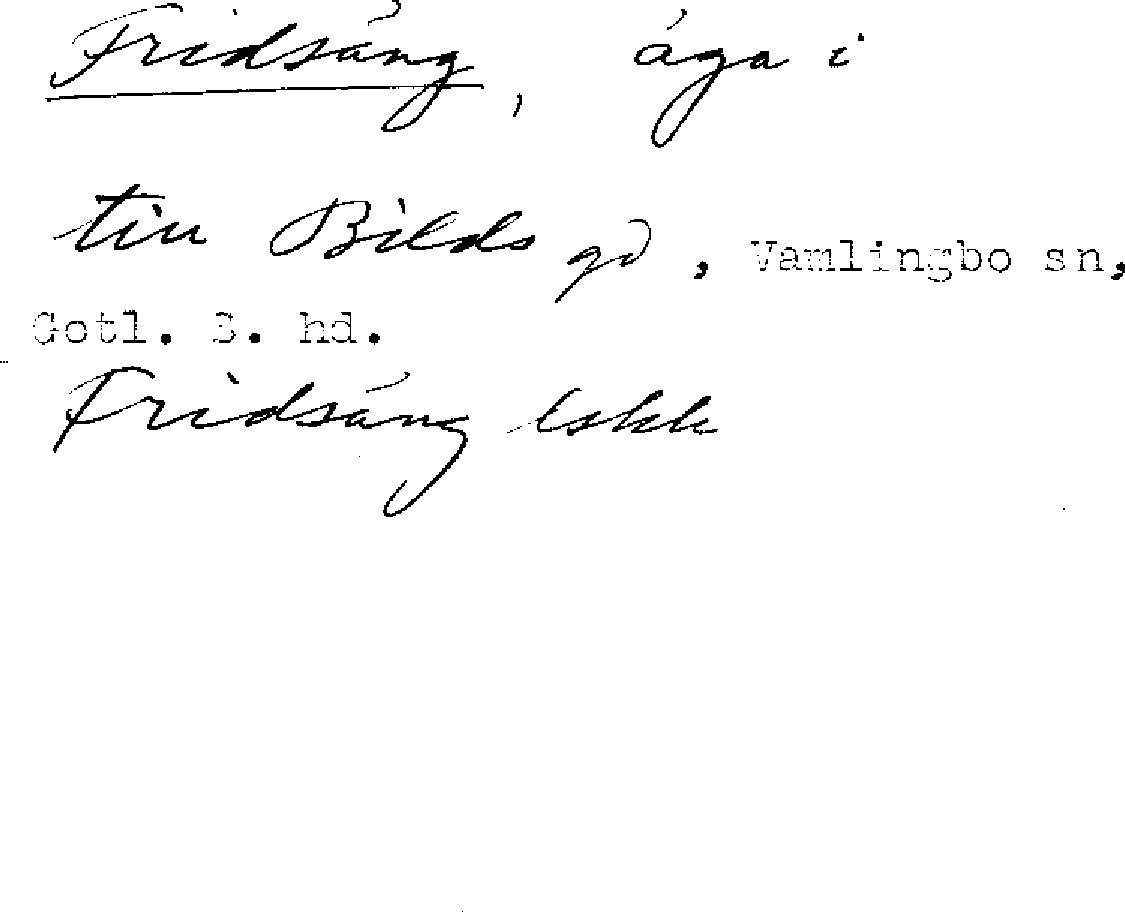 Fridsäng, äga i
till Bilds gd, Vamlingbo sn,
Gotl. S. hd.
Fridsäng